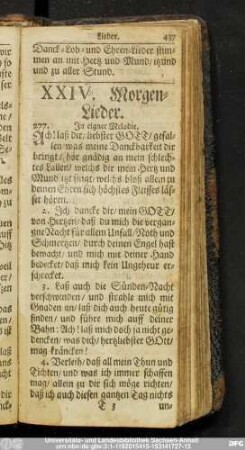 Lieder. 437
Danck-Lob- und Ehren-Lieder stim-
men an mit Hertz und Mund/ itzund
und zu aller Stund.
XXIV. Morgen-
Lieder.
277. In eigner Melodie.
Ach! laß dir, liebster GOTT/ gefal-
len/ was meine Danckbarkeit dir
bringt/ hör gnädig an mein schlech-
tes Lallen/ welchs dir mein Hertz und
Mund itzt singt/ welchs bloß allein zu
deinen Ehren sich höchstes Fleisses läs-
set hören.
2. Ich dancke dir/ mein GOTT/
von Hertzen/ daß du mich die vergan-
gne Nacht für allem Unfall/ Noth und
Schmertzen/ durch deinen Engel hast
bewacht/ und mich mit deiner Hand
bedecket/ daß mich kein Ungeheur er-
schrecket.
3. Laß auch die Sünden-Nacht
verschwinden/ und strahle mich mit
Gnaden an/ laß dich auch heute gütig
finden/ und führe mich auff deiner
Bahn: Ach! laß mich doch ja nicht ge-
dencken/ was dich/ hertzliebster GOtt/
mag kräncken!
4. Verleih/ daß all mein Thun und
Tichten/ und was ich immer schaffen
mag/ allein zu dir sich möge richten/
daß ich auch diesen gantzen Tag nichts
T 3 un-
Universitäts- und Landesbibliothek Sachsen-Anhalt
urn:nbn:de:gbv:3:1-1192015415-153141727-13